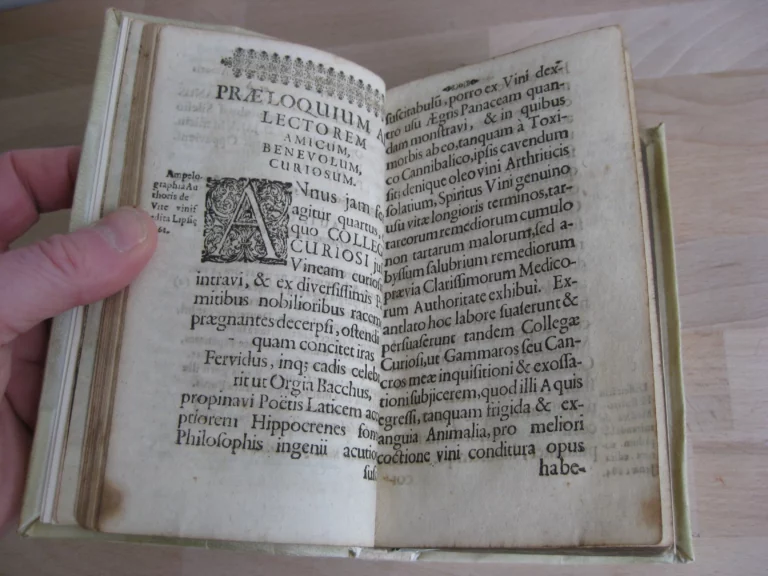 PRÆLOQUIUM A
LECTOREM
AMICUM,
BENEVOLUM,
CURIOSUM.
Ampelo-
graphia Au
thoris de
Vite vinif
edita Lipsiæ
ANnus jam se
agitur quartus,
quo COLLEG
CURIOSI ju
Vineam curios
intravi, & ex diversissimis p
mitibus nobilioribus racem
prægnantes decerpsi, ostendi
quam concitet iras
Fervidus, inq; cadis celeb
rit ut Orgia Bacchus,
propinavi Poëtis Laticem acc
ptiorem Hippocrenes fon
Philosophis ingenii acutio
sus
suscitabulū, porro ex Vini dex-
tro usu Ægris Panaceam quan-
dam monstravi, & in quibus
morbis ab eo, tanquam à Toxi-
co Cannibalico, ipsis cavendum
sit; denique oleo vini Arthriticis
solatium, Spiritus Vini genuino
usu vitæ longioris terminos, tar-
tareorum remediorum cumulo
non tartarum malorum, sed a-
byssum salubrium remediorum
prævia Clarissimorum Medico-
rum Authoritate exhibui. Ex-
antlato hoc labore suaserunt &
persuaserunt tandem Collegæ
Curiosi, ut Gammaros seu Can-
cros meæ inquisitioni & exossa-
tioni subjicerem, quod illi A quis
egressi, tanquam frigida & ex-
anguia Animalia, pro meliori
coctione vini conditura opus
habe-